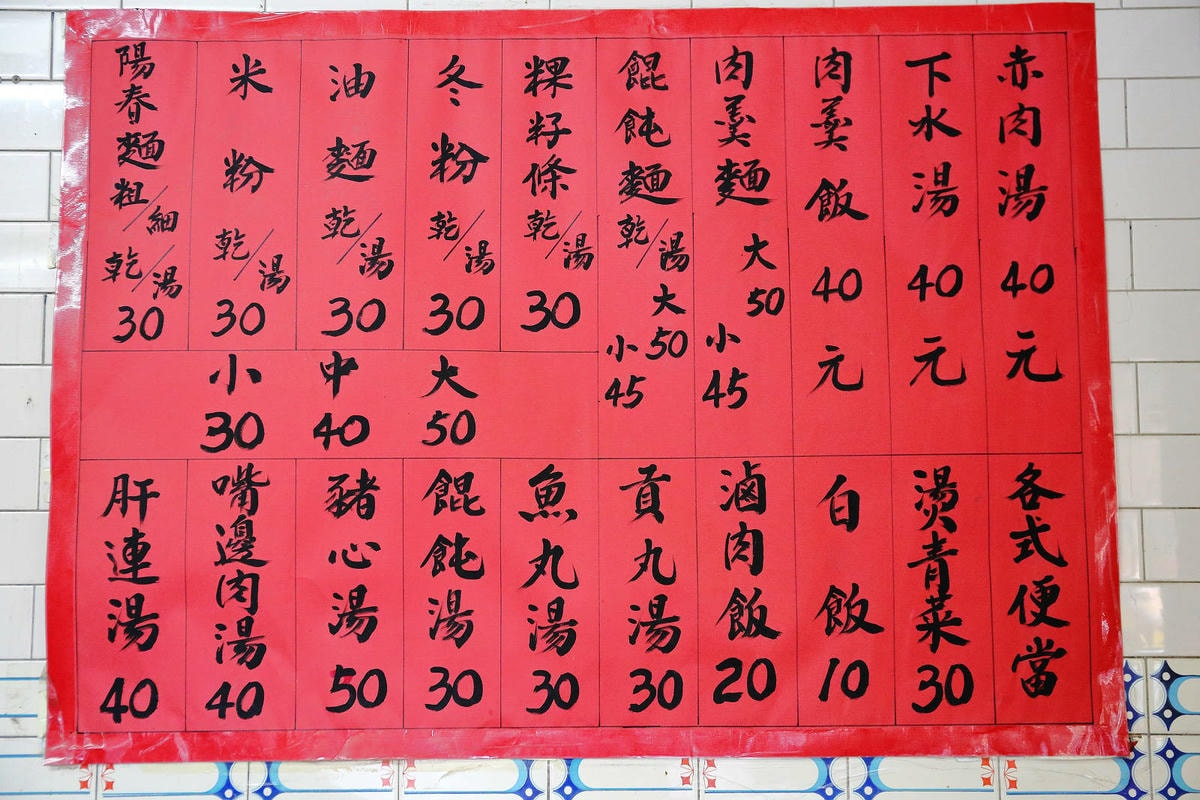 赤肉湯 40元
下水湯 40元
肉羹飯 40元
肉羹麵 大50 小45
餛飩麵 乾/湯 大50 小45
粿籽條 乾/湯 30
冬粉 乾/湯 30
油麵 乾/湯 30
米粉 乾/湯 30
陽春麵 粗/細 乾/湯 30
小30 中40 大50
各式便當
燙青菜 30
白飯 10
滷肉飯 20
貢丸湯 30
魚丸湯 30
餛飩湯 30
豬心湯 50
嘴邊肉湯 40
肝連湯 40